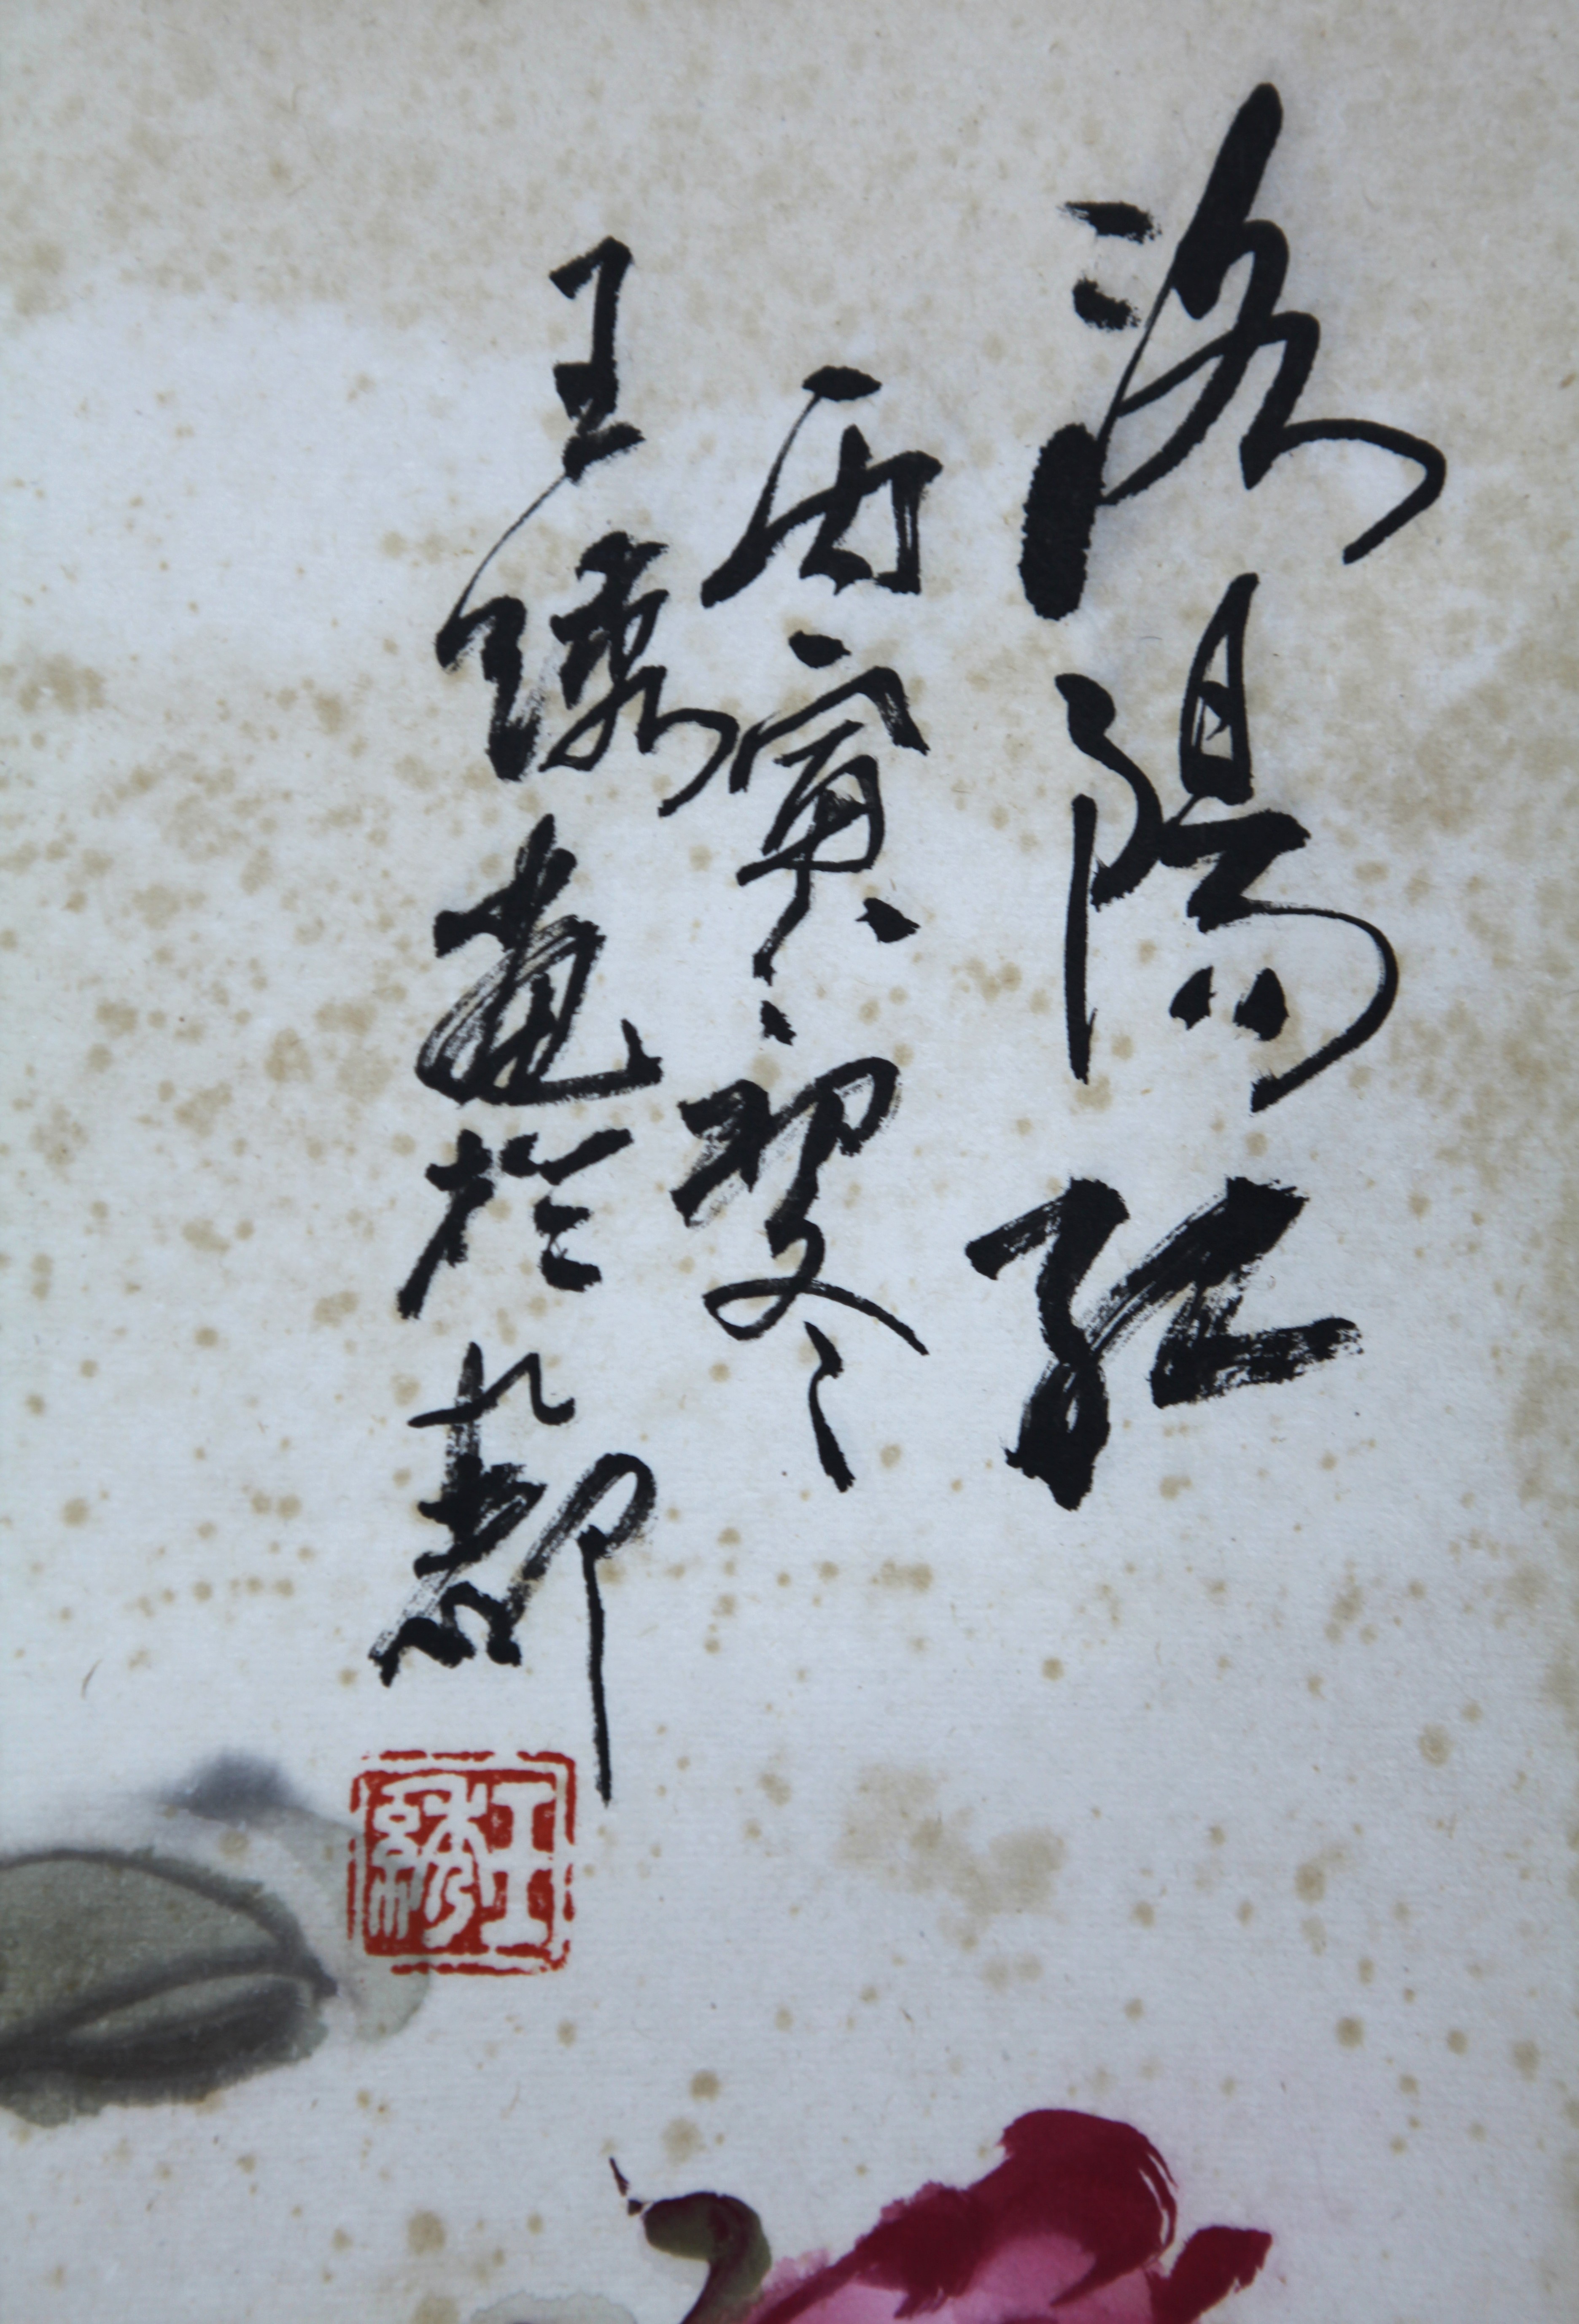 洛陽紅
丙寅初冬
王綉畫於九都
王綉